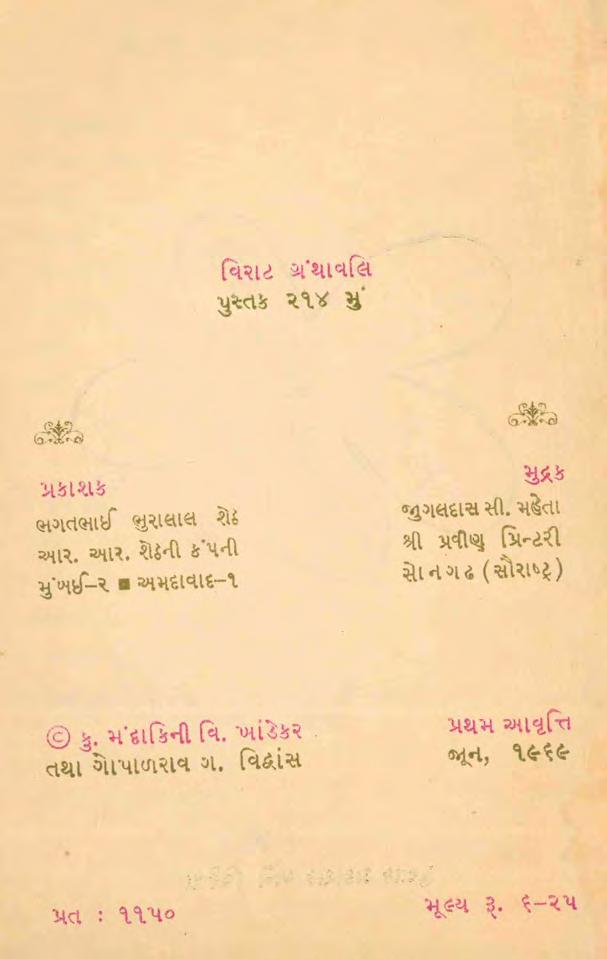 વિરાટ ગ્રંથાવલિ
પુસ્તક ૨૧૪ મું
પ્રકાશક
ભગતભાઈ ભુરાલાલ શેઠ
આર. આર. શેઠની કંપની
મુંબઈ–૨ ■ અમદાવાદ–૧
મુદ્રક
જુગલદાસ સી. મહેતા
શ્રી પ્રવીણ પ્રિન્ટરી
સોનગઢ (સૌરાષ્ટ્ર)
© કુ. મંદાકિની વિ. ખાંડેકર
તથા ગોપાળરાવ ગ. વિદ્વાંસ
પ્રથમ આવૃત્તિ
જૂન, ૧૯૬૯
પ્રત : ૧૧૫૦
મૂલ્ય રૂ. ૬–૨૫